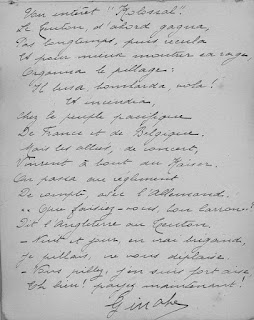 Son intérêt "Kolossal".
Le Teuton, d'abord gagna,
Pas longtemps, puis recula
Et pour mieux montrer sa rage
Organisa le pillage:
Il brisa, bombarda, vola!
Et incendia,
Chez le peuple pacifique
De France et de Belgique.
Mais les alliés, de concert,
Vinrent à bout du Kaiser.
On passa au règlement
De compte, avec l'Allemand.
"Que faisiez-vous, bon larron?
Dit l'Angleterre au Teuton.
- Nuit et jour, en vrai brigand,
Je pillais, ne vous déplaise.
- Vous pilliez, j'en suis fort aise,
Eh bien! payez maintenant!